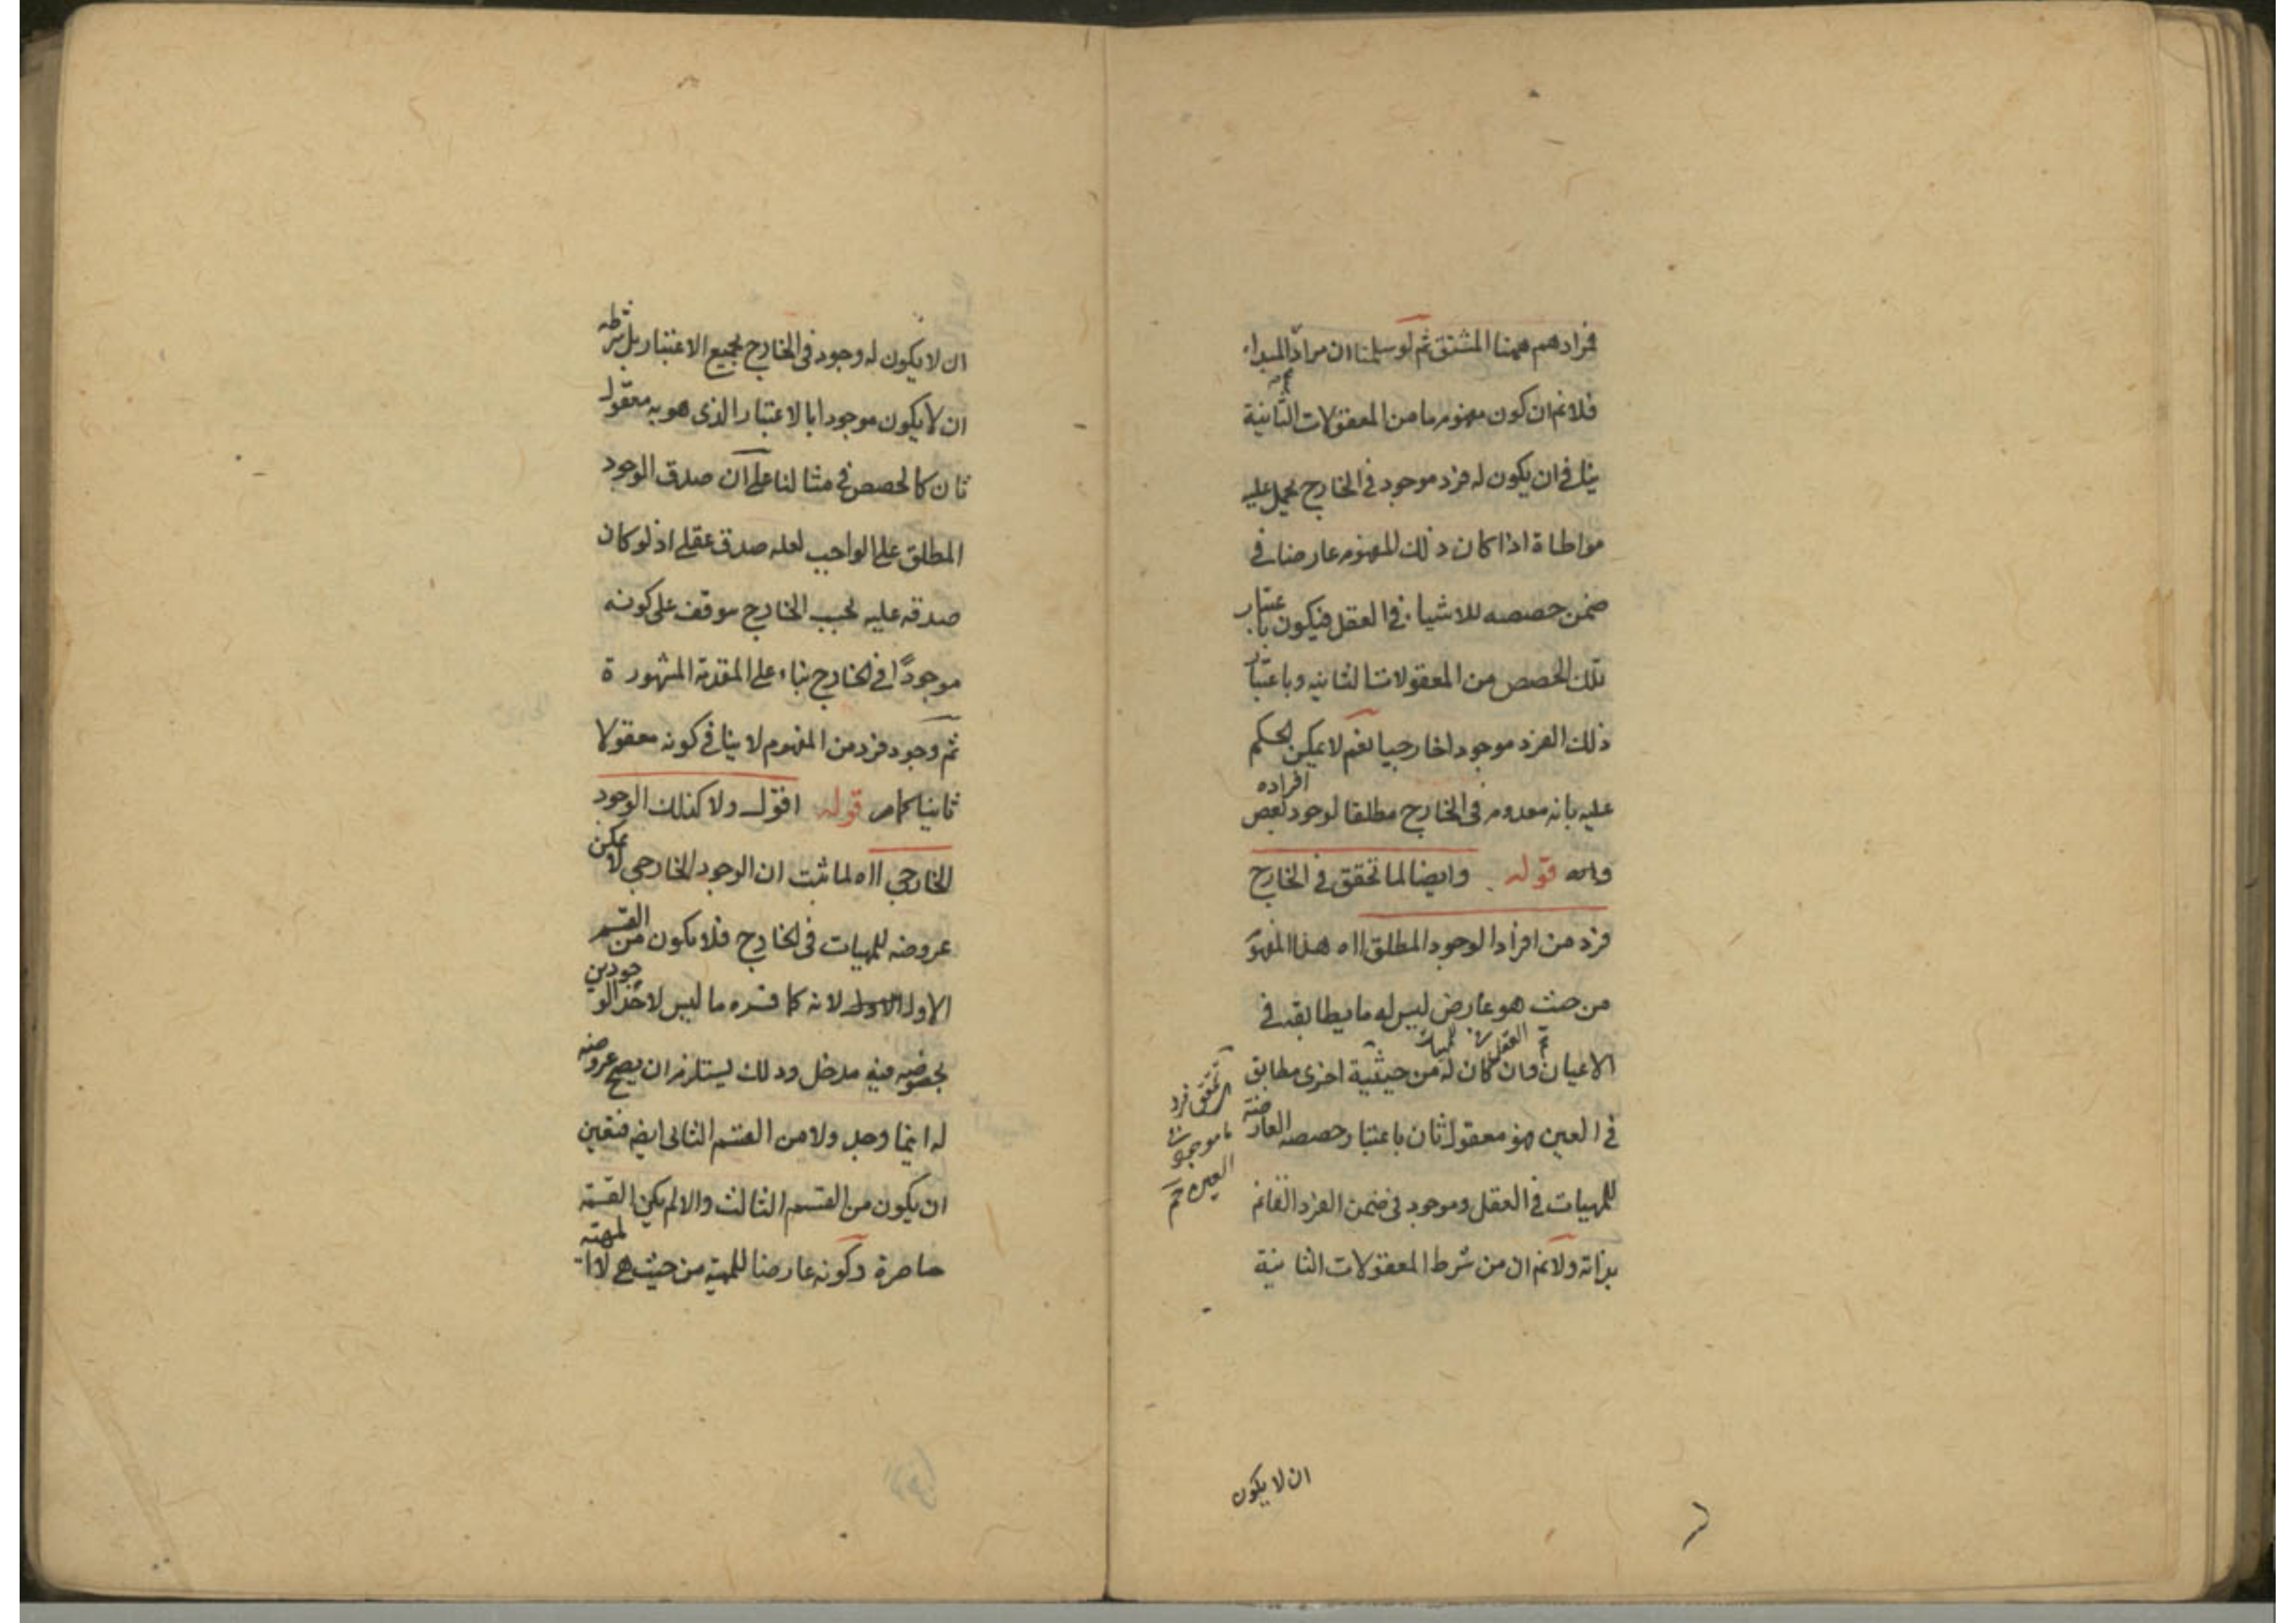 فمرادهم ههنا المشتق ثم لو سلمنا ان مراد المبداء
فلانم ان كون مفهوم ما من المعقولات الثانية
ينافى ان يكون له فرد موجود فى الخارج يحمل عليه
مواطاة اذا كان ذلك المفهوم عارضا فى
ضمن حصصه للاشياء فى العقل فيكون باعتبار
تلك الحصص من المعقولات الثانيه وباعتبار
ذلك الفرد موجودا خارجيا نعم لا يمكن الحكم
عليه بانه معدوم فى الخارج مطلقا لوجود بعض
افراده
قوله وايضا لما تحقق فى الخارج
فرد من افراد الوجود المطلق ااه هذا المفهوم
من حيث هو عارض ليس له ما يطابقه فى
الاعيان وان كان له من حيثية اخرى مطابق
فى العين فهو معقول ثان باعتبار حصصه العارضة
للمهيات فى العقل وموجود فى ضمن الفرد القائم
بذاته ولانم ان من شرط المعقولات الثانية
للمهيات فى العقل
لتحقق فرد
ما موجود فى
العين
ان لا يكون
ان لا يكون له وجود فى الخارج بجميع الاعتبار بل شرطه
ان لا يكون موجودا بالاعتبار الذى هو به معقول
ثان كالحصص فى مثالنا على ان صدق الوجود
المطلق على الواجب لعله صدق عقلى اذ لو كان
صدقه عليه بحسب الخارج موقف على كونه
موجودًا فى الخارج بناء على المقدمة المشهورة
ثم وجود فرد من المفهوم لا ينافى كونه معقولا
ثانيا كما مر قوله اقول ولا كذلك الوجود
الخارجى ااه لما ثبت ان الوجود الخارجى لا يمكن
عروضه للمهيات فى الخارج فلا يكون من القسم
الاول لانه كما فسره ما ليس لاحد الوجودين
بخصوصه فيه مدخل وذلك يستلزم ان يصح عروضه
له اينما وجد ولا من القسم الثانى ايضه فتعين
ان يكون من القسم الثالث والا لم يكن القسمة
حاصرة وكونه عارضا للمهية من حيث هى لا